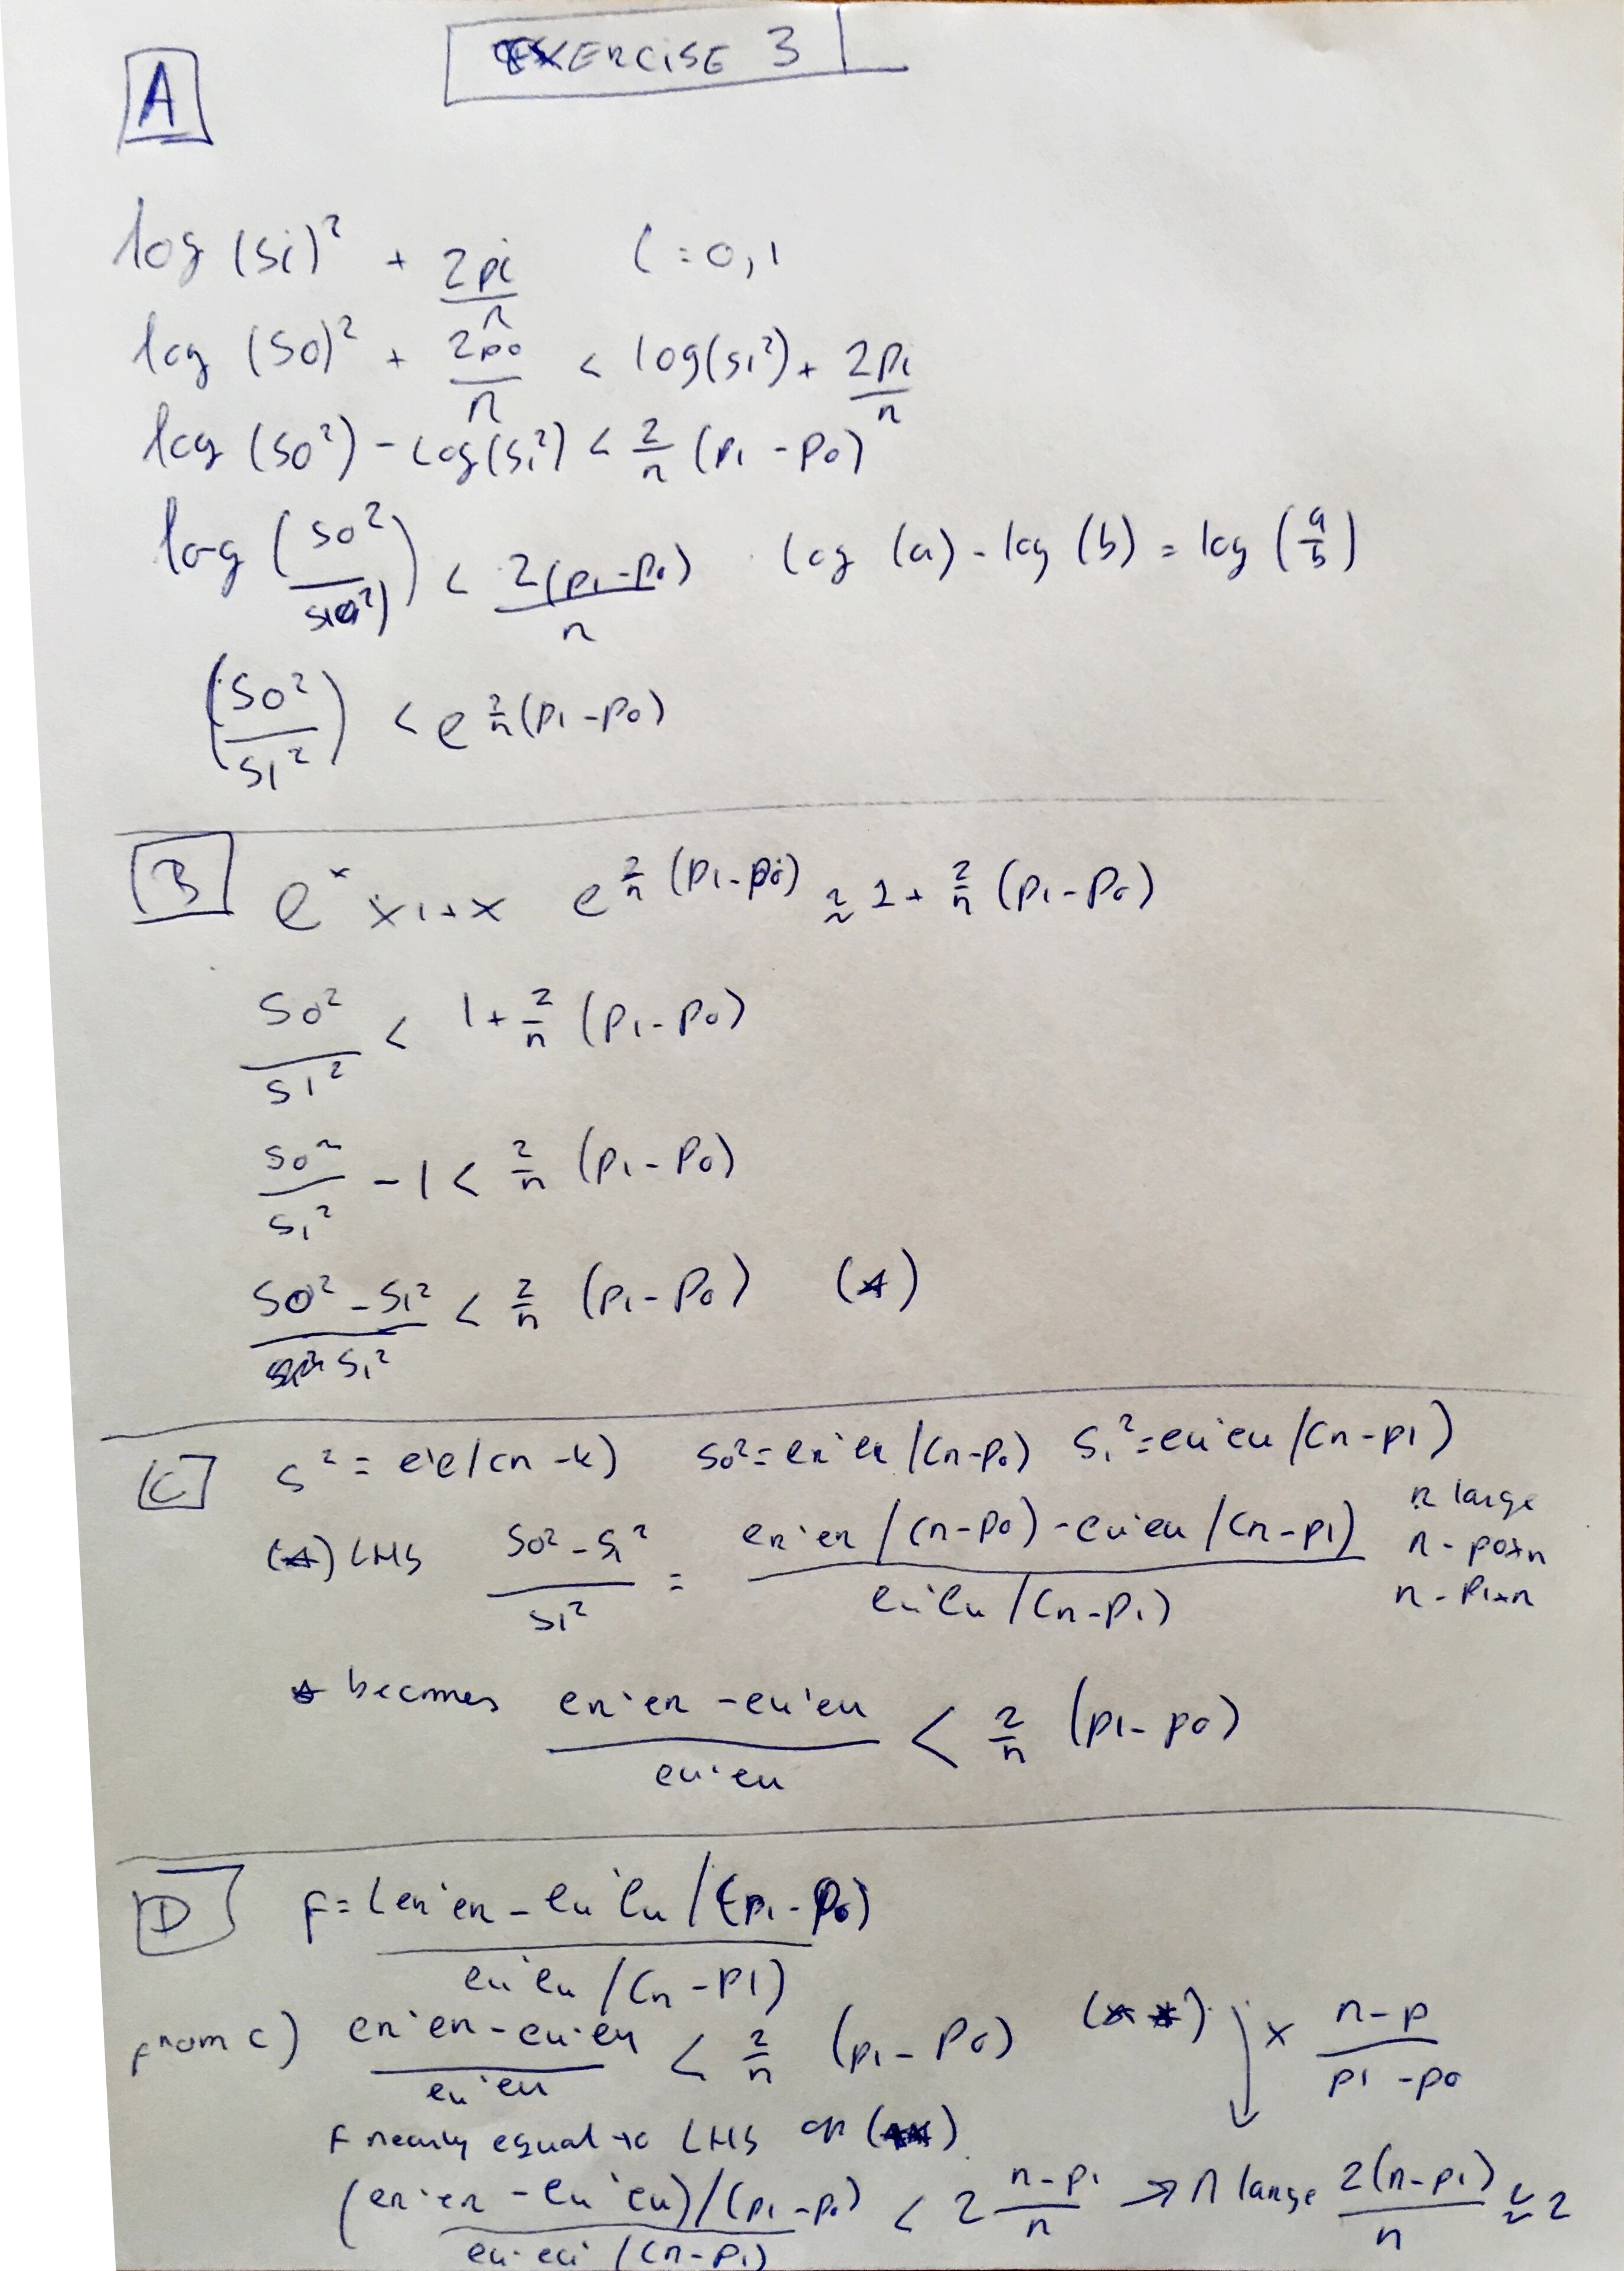 EXERCISE 3
A
log (si)² + 2pi/n i=0,1
log (so)² + 2po/n < log(s1²) + 2p1/n
log (so²) - log(s1²) < 2/n (p1 - po)
log (so²/s1²) < 2(p1-po)/n log (a) - log (b) = log (a/b)
(so²/s1²) < e^2/n(p1-po)
B e^x ≈ 1+x e^2/n (p1-po) ≈ 1 + 2/n (p1-po)
so²/s1² < 1 + 2/n (p1-po)
so²/s1² - 1 < 2/n (p1-po)
so² - s1²/s1² < 2/n (p1-po) (*)
C s² = e'e/(n-k) so² = eR'eR/(n-po) s1² = eu'eu/(n-p1)
(*) LHS so²-s1²/s1² = eR'eR/(n-po) - eu'eu/(n-p1)/eu'eu/(n-p1) n large
n-po≈n
n-p1≈n
* becomes eR'eR - eu'eu/eu'eu < 2/n (p1-po)
D F = (eR'eR - eu'eu/(p1-po)/eu'eu/(n-p1)
from c) eR'eR - eu'eu/eu'eu < 2/n (p1-po) (**) × n-p/p1-po
F nearly equal to LHS of (**)
(eR'eR - eu'eu)/(p1-po)/eu'eu/(n-p1) < 2 n-p1/n → n large 2(n-p1)/n ≈ 2